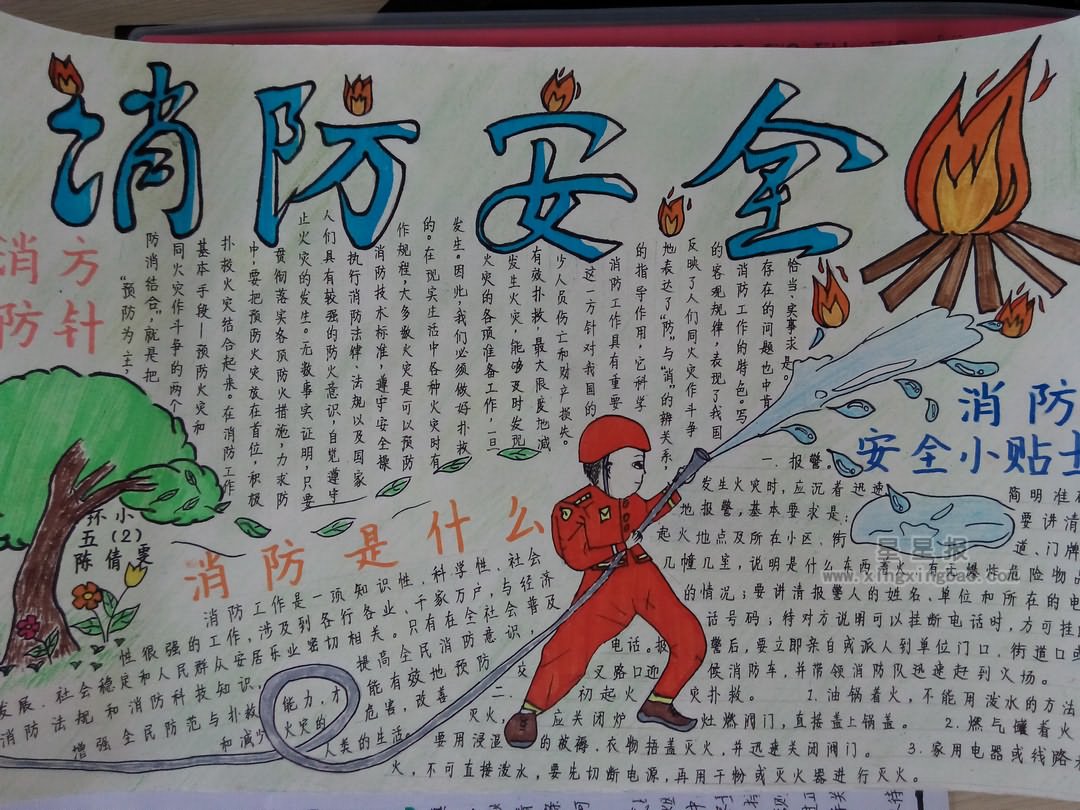 消防安全
消方
防针
“预防为主,
防消结合”,就是把
同火灾作斗争的两个
基本手段—预防火灾和
扑救火灾结合起来。在消防工作
中,要把预防火灾放在首位,积极
贯彻落实各项防火措施,力求防
止火灾的发生。无数事实证明,只要
人们具有较强的防火意识,自觉遵守
执行消防法律、法规以及国家
消防技术标准,遵守安全操
作规程,大多数火灾是可以预防
的。在现实生活中各种火灾时有
发生。因此,我们必须做好扑救
火灾的各项准备工作,一旦
发生火灾,能够及时发现
有效扑救,最大限度地减
少人员伤亡和财产损失。
这一方针对我国的
消防工作具有重要
的指导作用,它科学
地表达了“防”与“消”的辨关系,
反映了人们同火灾作斗争
的客观规律,表现了我国
消防工作的特色。写
存在的问题也中肯
恰当、实事求是。
环小
五(2)
陈倩雯
消防是什么
消防工作是一项知识性、科学性、社会
性很强的工作,涉及到各行各业、千家万户,与经济
发展、社会稳定和人民群众安居乐业密切相关。只有在全社会普及
消防法规和消防科技知识,提高全民消防意识,
增强全民防范与扑救能力,才能有效地预防
和减少火灾的危害,改善
人类的生活。
消防
安全小贴士
一.报警。
发生火灾时,应沉着迅速 简明准
地报警,基本要求是: 要讲清
起火地点及所在小区、街道、门牌
几幢几室,说明是什么东西着火,有无爆炸危险物品
的情况;要讲清报警人的姓名、单位和所在的电
话号码;待对方说明可以挂断电话时,方可挂
电话。报警后,要立即亲自或派人到单位门口、街道口或
交叉路口迎候消防车,并带领消防队迅速赶到火场。
二.初起火灾扑救。 1.油锅着火,不能用泼水的方法
灭火,应关闭炉灶燃阀门,直接盖上锅盖。 2.燃气罐着火
要用浸湿的被褥、衣物捂盖灭火,并迅速关闭阀门。 3.家用电器或线路
火,不可直接泼水,要先切断电源,再用干粉或灭火器进行灭火。
星星报
www.xingxingbao.com